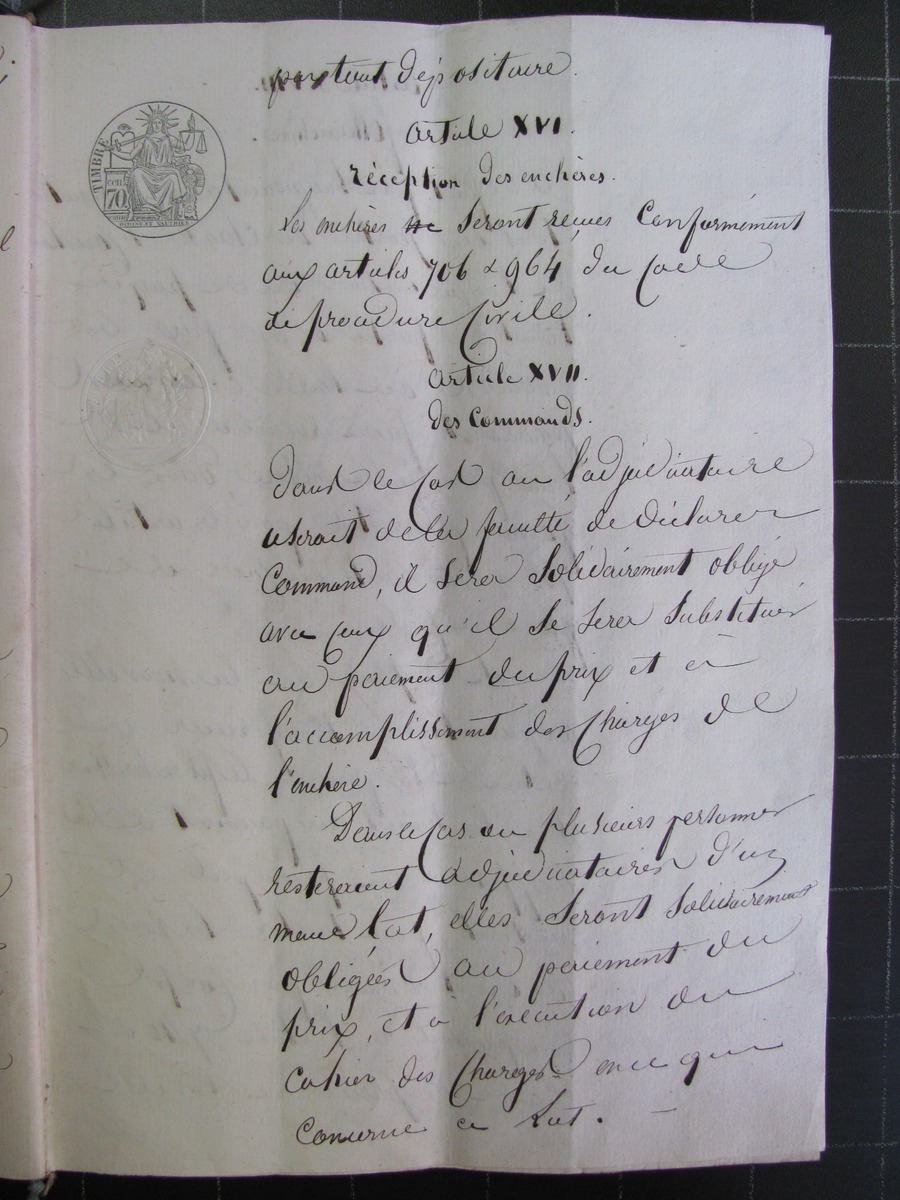 par tout dépositaire.
Article XVI.
réception des enchères.
TIMBRE
cen
70
Les enchères ne seront reçues Conformément
aux articles 706 & 964 du Code
de procédure Civile.
Article XVII.
des Commands.
Dans le Cas ou l'adjudicataire
userait de la faculté de déclarer
Command, il sera Solidairement obligé
avec Ceux qu'il se sera Substitués
au paiement du prix et à
l'accomplissement des Charges de
l'enchère.
Dans le Cas ou plusieurs personnes
resteraient adjudicataires d'un
meme lot, elles Seront Solidairement
obligées au paiement du
prix, et à l'exécution du
Cahier des Charges en ce qui
Concerne ce Lot.